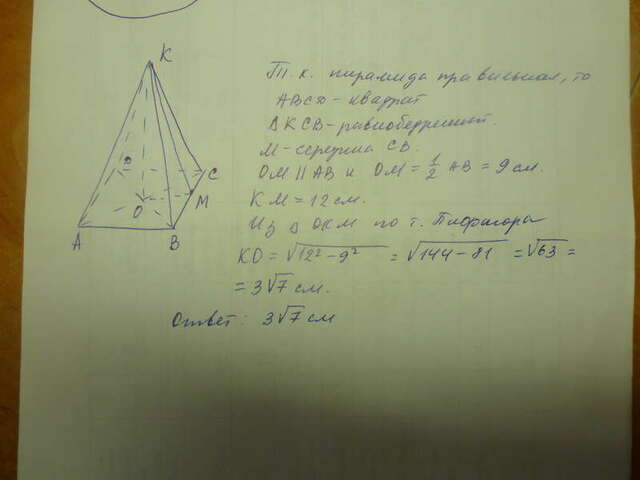 K
D
C
M
O
A
B
Т.к. пирамида правильная, то
ABCD - квадрат
ΔKCB - равнобедренный.
M - середина CB.
OM || AB и OM = 1/2 AB = 9 см.
KM = 12 см.
Из Δ OKM по т. Пифагора
KO = √(12² - 9²) = √(144 - 81) = √63 =
= 3√7 см.
Ответ: 3√7 см